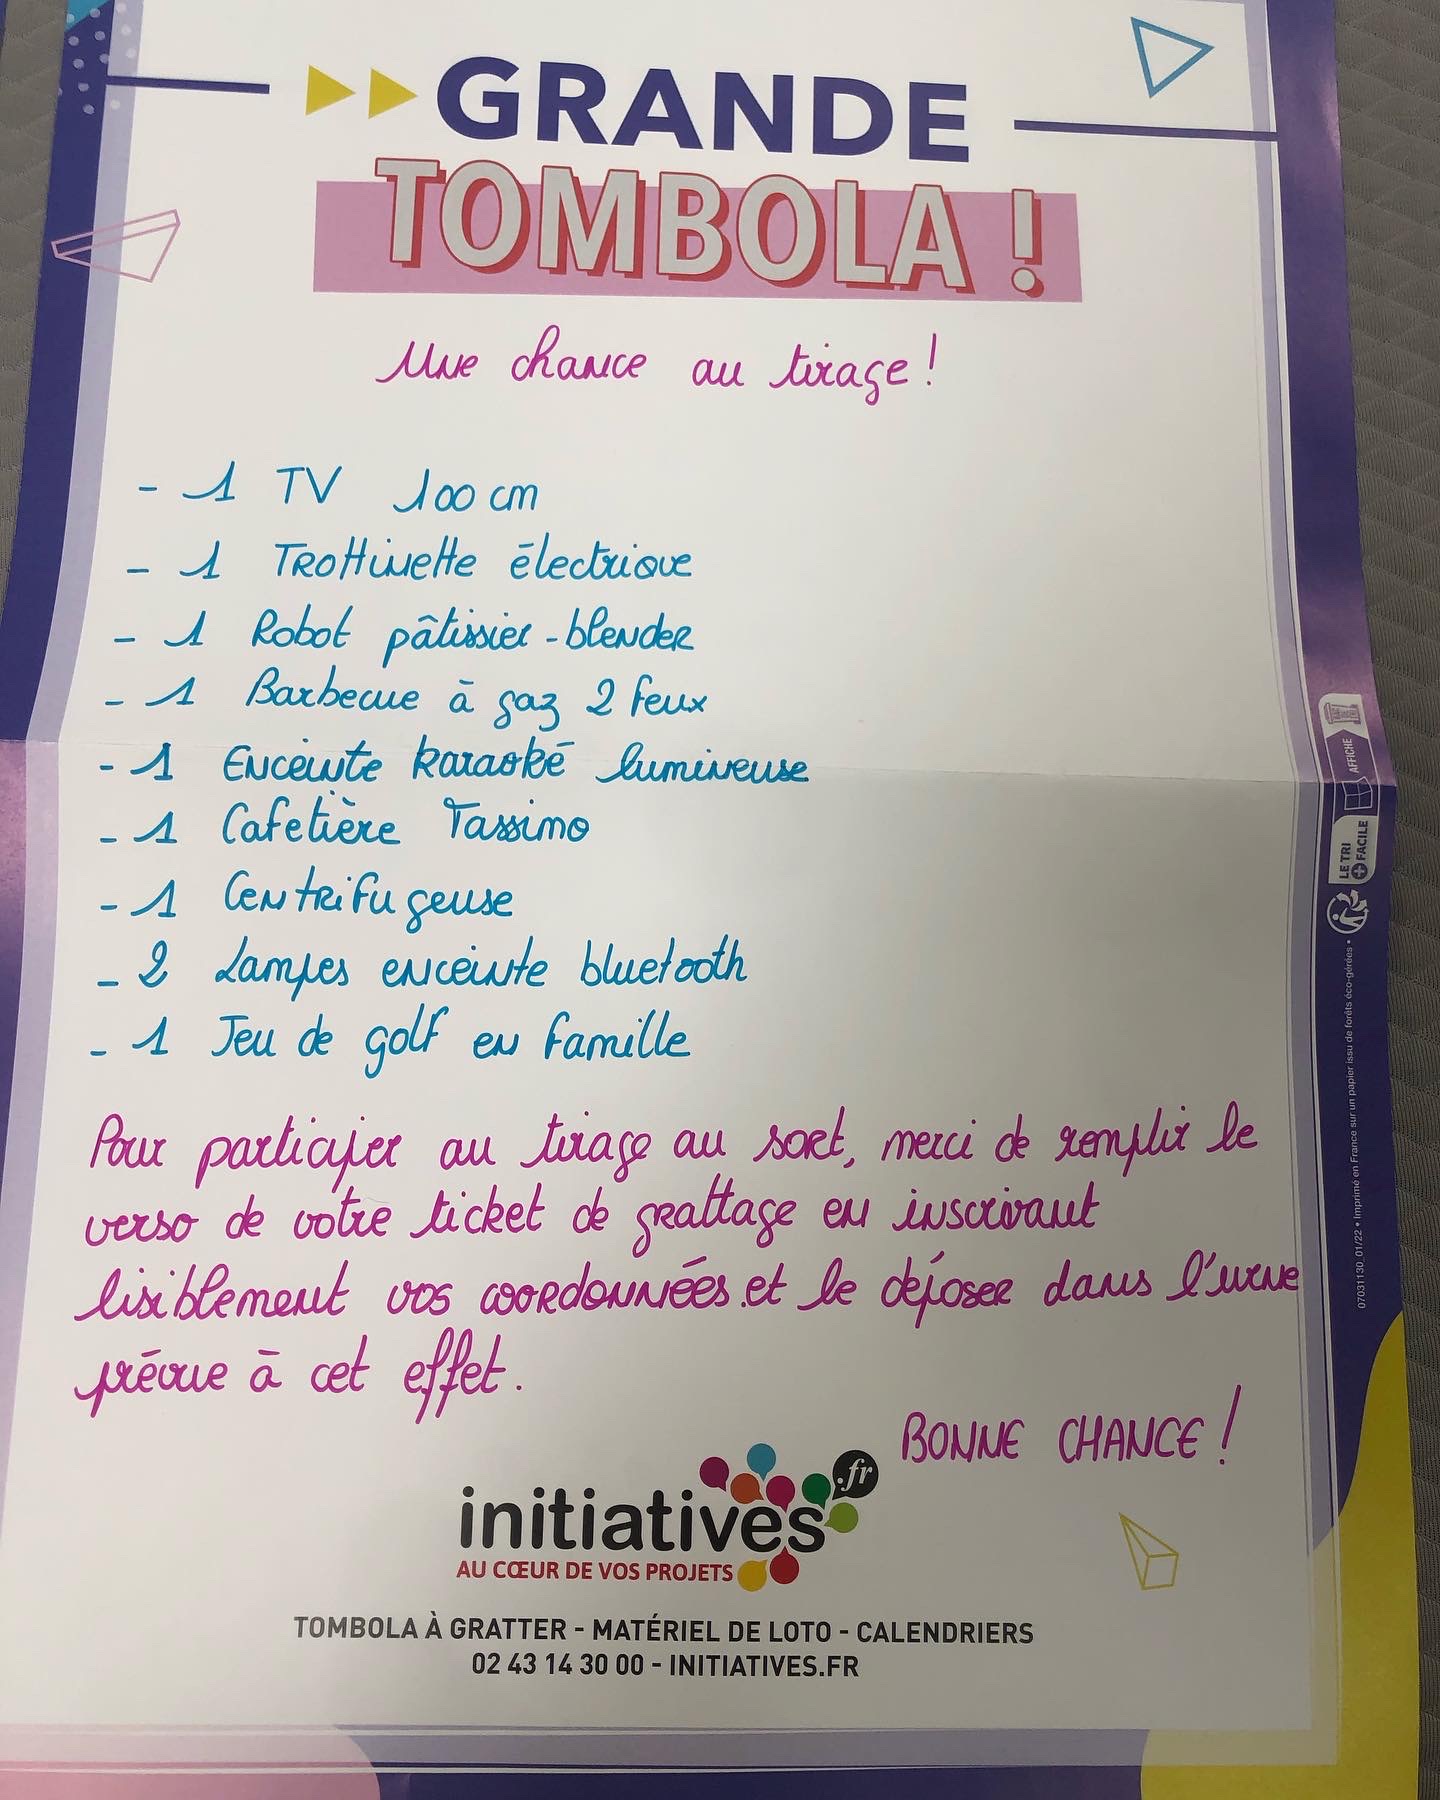 GRANDE
TOMBOLA !
Une chance au tirage !
- 1 TV 100 cm
- 1 Trottinette électrique
- 1 Robot pâtissier - blender
- 1 Barbecue à gaz 2 feux
- 1 Enceinte karaoké lumineuse
- 1 Cafetière Tassimo
- 1 Centrifugeuse
- 2 Lampes enceinte bluetooth
- 1 Jeu de golf en famille
Pour participer au tirage au sort, merci de remplir le
verso de votre ticket de grattage en inscrivant
lisiblement vos coordonnées.et le déposer dans l'urne
prévue à cet effet.
BONNE CHANCE !
initiatives .fr
AU CŒUR DE VOS PROJETS
TOMBOLA À GRATTER - MATÉRIEL DE LOTO - CALENDRIERS
02 43 14 30 00 - INITIATIVES.FR
AFFICHE
LE TRI
+ FACILE
07031130_01/22 • Imprimé en France sur un papier issu de forêts éco-gérées •